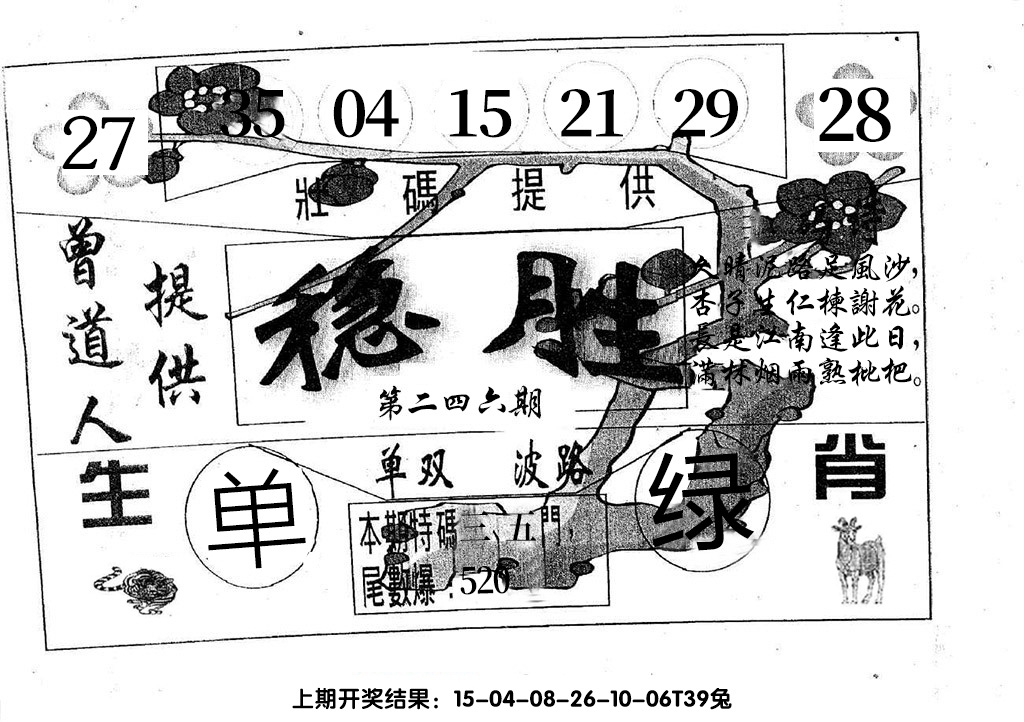 27 35 04 15 21 29 28
壯碼提供
曾道人
提供
稳胜
第二四六期
晴泥路足風沙,
杏子生仁楝謝花。
長是江南逢此日,
滿林烟雨熟枇杷。
单双 波路
生肖
单
绿
本期特碼三、五門,
尾數爆:520
上期开奖结果:15-04-08-26-10-06T39兔